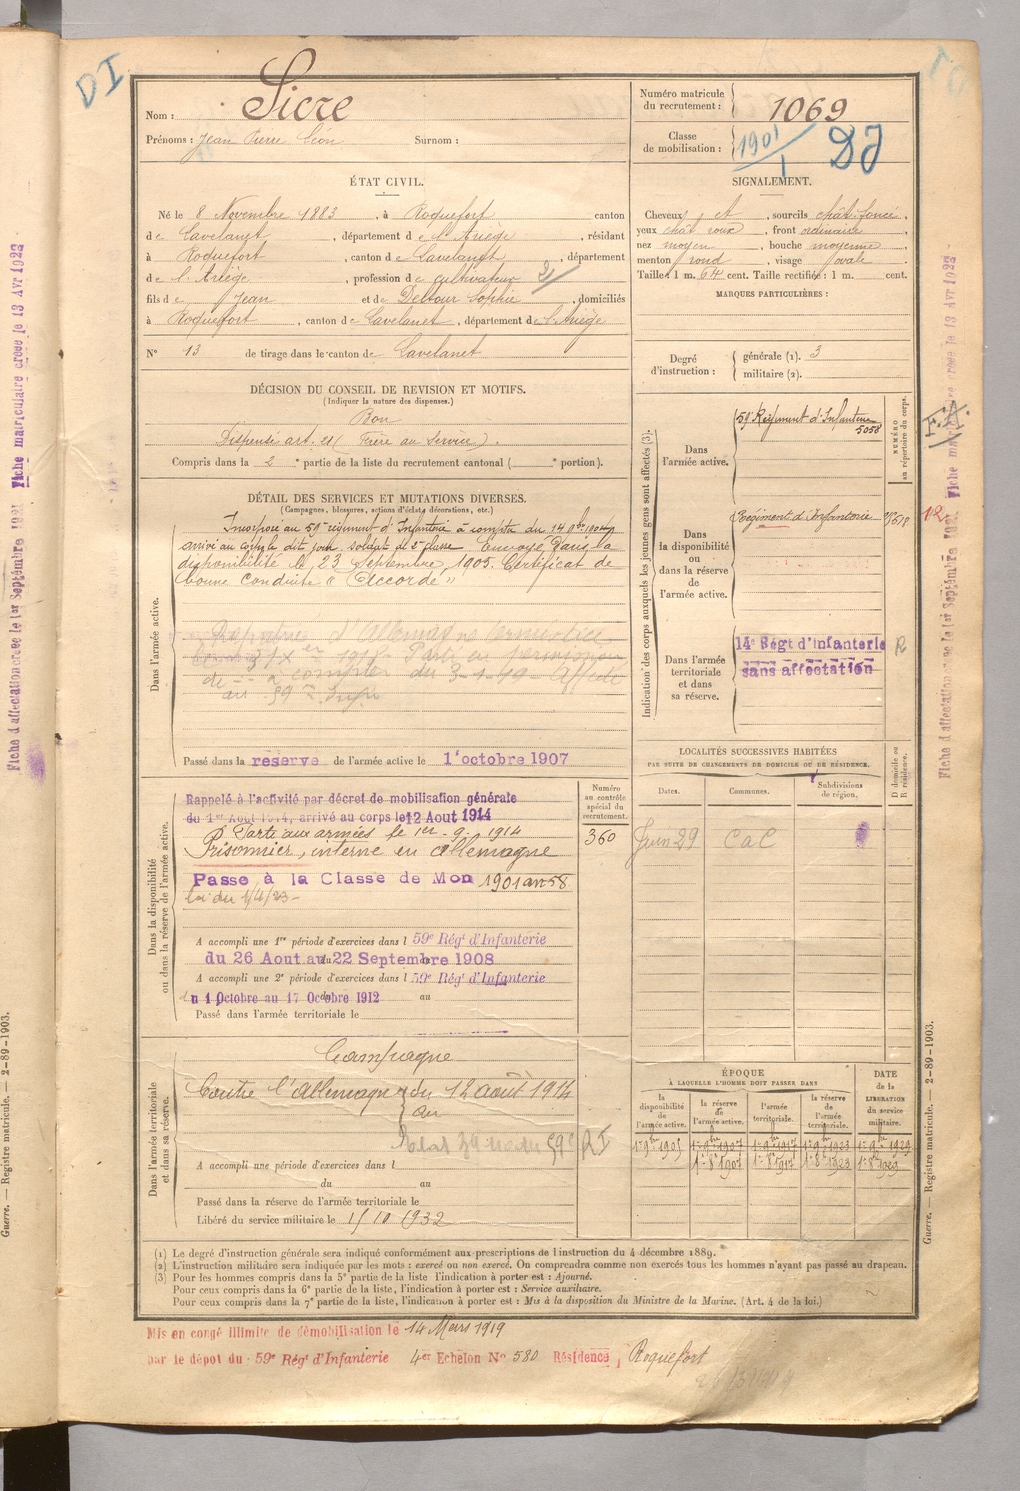 DI
Nom : Sicre
Prénoms : Jean Pierre Léon Surnom :
Numéro matricule du recrutement : 1069
Classe de mobilisation : 1901
ÉTAT CIVIL.
Né le 8 Novembre 1883, à Roquefort canton
de Lavelanet, département de l'Ariège, résidant
à Roquefort, canton de Lavelanet, département
de l'Ariège, profession de cultivateur
fils de Jean et de Deltour Sophie, domiciliés
à Roquefort, canton de Lavelanet, département de l'Ariège
N° 13 de tirage dans le canton de Lavelanet
SIGNALEMENT.
Cheveux et, sourcils chât. foncé,
yeux chât roux, front ordinaire
nez moyen, bouche moyenne
menton rond, visage ovale
Taille : 1 m. 64 cent. Taille rectifiée : 1 m. cent.
MARQUES PARTICULIÈRES :
Degré d'instruction : générale (1). 3
militaire (2).
DÉCISION DU CONSEIL DE REVISION ET MOTIFS.
(Indiquer la nature des dispenses.)
Bon
Dispensé art. 21 (Frère au Service).
Compris dans la 2e partie de la liste du recrutement cantonal ( e portion).
DÉTAIL DES SERVICES ET MUTATIONS DIVERSES.
(Campagnes, blessures, actions d'éclat, décorations, etc.)
Dans l'armée active.
Incorporé au 59e régiment d'Infanterie à compter du 14 9bre 1904
arrivé au corps le dit jour, soldat de 2e classe. Envoyé dans la
disponibilité le 23 Septembre 1905. Certificat de
bonne conduite « Accordé »
d'Allemagne
Parti en permission
de à compter du 3-1-19 Affecté
au 59e
Passé dans la réserve de l'armée active le 1er octobre 1907
Indication des corps auxquels les jeunes gens sont affectés (3).
NUMÉRO au répertoire du corps.
Dans l'armée active. 59e Régiment d'Infanterie 5058
Dans la disponibilité ou dans la réserve de l'armée active. Régiment d'Infanterie
12
Dans l'armée territoriale et dans sa réserve. 14e Régt d'Infanterie R
sans affectation
LOCALITÉS SUCCESSIVES HABITÉES
PAR SUITE DE CHANGEMENTS DE DOMICILE OU DE RÉSIDENCE.
Dates. Communes. Subdivisions de région. D domicile ou R résidence.
Juin 29 CaC
Dans la disponibilité ou dans la réserve de l'armée active.
Numéro au contrôle spécial du recrutement.
360
Rappelé à l'activité par décret de mobilisation générale
du 1er Aout 1914, arrivé au corps le 12 Aout 1914
Parti aux armées le 1er - 9 - 1914
Prisonnier, interné en Allemagne
Passé à la Classe de Mon 1901 art 58
loi du 1/4/23 -
A accompli une 1re période d'exercices dans l 59e Régt d'Infanterie
du 26 Aout au 22 Septembre 1908
A accompli une 2e période d'exercices dans l 59e Régt d'Infanterie
du 1 Octobre au 17 Octobre 1912 au
Passé dans l'armée territoriale le
Dans l'armée territoriale et dans sa réserve.
Campagne
Contre l'Allemagne du 12 août 1914
au
59e RI
A accompli une période d'exercices dans l
du au
Passé dans la réserve de l'armée territoriale le
Libéré du service militaire le 15/10 1932
ÉPOQUE
À LAQUELLE L'HOMME DOIT PASSER DANS
DATE de la LIBÉRATION du service militaire.
la disponibilité de l'armée active. la réserve de l'armée active. l'armée territoriale. la réserve de l'armée territoriale.
1er 9bre 1905 1er 9bre 1907 1er 9bre 1917 1er 9bre 1923 1er 9bre 1929
1er 8bre 1907 1er 8bre 1917 1er 8bre 1923 1er 8bre 1929
(1) Le degré d'instruction générale sera indiqué conformément aux prescriptions de l'instruction du 4 décembre 1889.
(2) L'instruction militaire sera indiquée par les mots : exercé ou non exercé. On comprendra comme non exercés tous les hommes n'ayant pas passé au drapeau.
(3) Pour les hommes compris dans la 5e partie de la liste l'indication à porter est : Ajourné.
Pour ceux compris dans la 6e partie de la liste, l'indication à porter est : Service auxiliaire.
Pour ceux compris dans la 7e partie de la liste, l'indication à porter est : Mis à la disposition du Ministre de la Marine. (Art. 4 de la loi.)
Mis en congé illimité de démobilisation le 14 Mars 1919
par le dépôt du 59e Rég' d'Infanterie 4er Echelon N° 580 Résidence, Roquefort
Fiche d'affectation créée le 1er Septembre 1921. Fiche matriculaire créée le 13 Avr 1922
Fiche d'affectation créée le 1er Septembre 1921. Fiche matriculaire créée le 13 Avr 1922
Guerre. — Registre matricule. — 2-89-1903.
Guerre. — Registre matricule. — 2-89-1903.